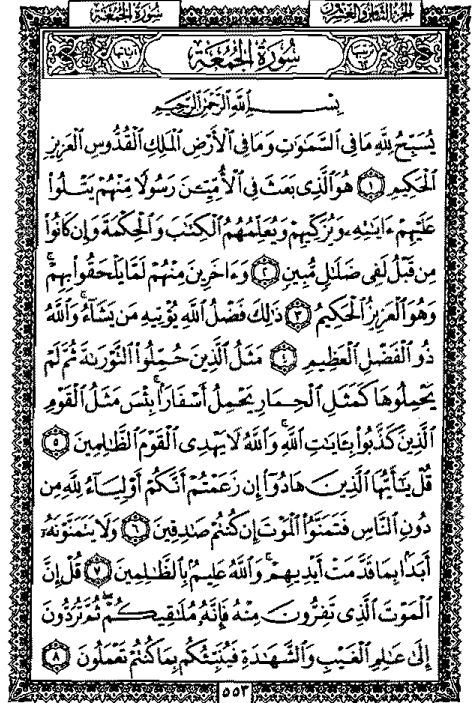 الجزء الثامن والعشرون
سُورَةُ الجُمُعَة
ترتيبها ٦٢
سُورَةُ الجُمُعَة
آياتها ١١
بِسْمِ ٱللَّهِ ٱلرَّحْمَٰنِ ٱلرَّحِيمِ
يُسَبِّحُ لِلَّهِ مَا فِي ٱلسَّمَٰوَٰتِ وَمَا فِي ٱلْأَرْضِ ٱلْمَلِكِ ٱلْقُدُّوسِ ٱلْعَزِيزِ
ٱلْحَكِيمِ ١ هُوَ ٱلَّذِي بَعَثَ فِي ٱلْأُمِّيِّـۧنَ رَسُولًا مِّنْهُمْ يَتْلُوا۟
عَلَيْهِمْ ءَايَٰتِهِۦ وَيُزَكِّيهِمْ وَيُعَلِّمُهُمُ ٱلْكِتَٰبَ وَٱلْحِكْمَةَ وَإِن كَانُوا۟
مِن قَبْلُ لَفِي ضَلَٰلٍ مُّبِينٍ ٢ وَءَاخَرِينَ مِنْهُمْ لَمَّا يَلْحَقُوا۟ بِهِمْ ۚ
وَهُوَ ٱلْعَزِيزُ ٱلْحَكِيمُ ٣ ذَٰلِكَ فَضْلُ ٱللَّهِ يُؤْتِيهِ مَن يَشَآءُ ۚ وَٱللَّهُ
ذُو ٱلْفَضْلِ ٱلْعَظِيمِ ٤ مَثَلُ ٱلَّذِينَ حُمِّلُوا۟ ٱلتَّوْرَىٰةَ ثُمَّ لَمْ
يَحْمِلُوهَا كَمَثَلِ ٱلْحِمَارِ يَحْمِلُ أَسْفَارًۢا ۚ بِئْسَ مَثَلُ ٱلْقَوْمِ
ٱلَّذِينَ كَذَّبُوا۟ بِـَٔايَٰتِ ٱللَّهِ ۚ وَٱللَّهُ لَا يَهْدِي ٱلْقَوْمَ ٱلظَّٰلِمِينَ ٥
قُلْ يَٰٓأَيُّهَا ٱلَّذِينَ هَادُوٓا۟ إِن زَعَمْتُمْ أَنَّكُمْ أَوْلِيَآءُ لِلَّهِ مِن
دُونِ ٱلنَّاسِ فَتَمَنَّوُا۟ ٱلْمَوْتَ إِن كُنتُمْ صَٰدِقِينَ ٦ وَلَا يَتَمَنَّوْنَهُۥٓ
أَبَدًۢا بِمَا قَدَّمَتْ أَيْدِيهِمْ ۚ وَٱللَّهُ عَلِيمٌۢ بِٱلظَّٰلِمِينَ ٧ قُلْ إِنَّ
ٱلْمَوْتَ ٱلَّذِي تَفِرُّونَ مِنْهُ فَإِنَّهُۥ مُلَٰقِيكُمْ ۖ ثُمَّ تُرَدُّونَ
إِلَىٰ عَٰلِمِ ٱلْغَيْبِ وَٱلشَّهَٰدَةِ فَيُنَبِّئُكُم بِمَا كُنتُمْ تَعْمَلُونَ ٨
٥٥٣